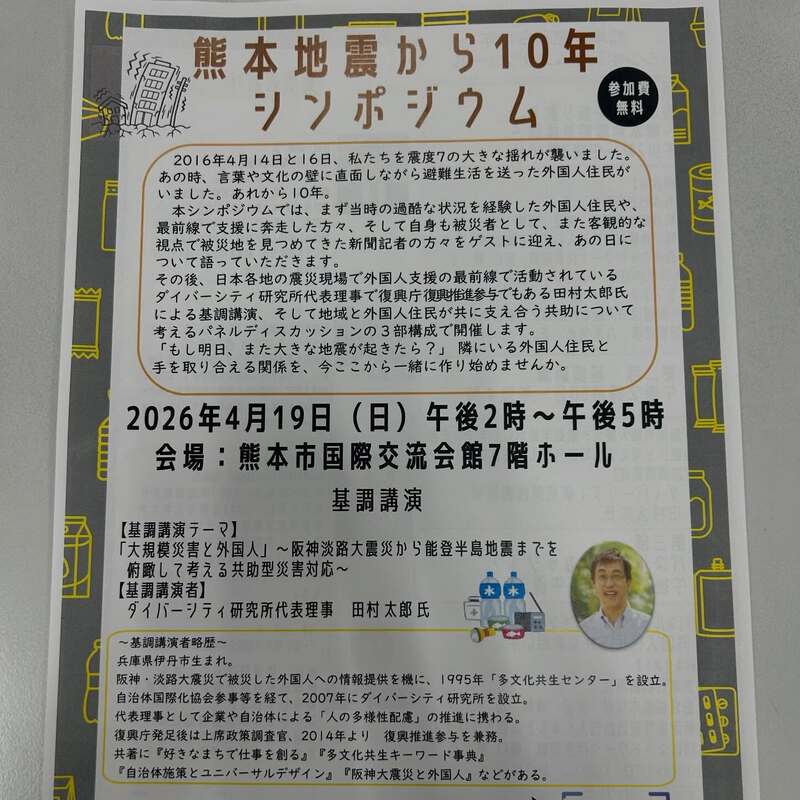 熊本地震から10年
シンポジウム
参加費
無料
2016年4月14日と16日、私たちを震度7の大きな揺れが襲いました。
あの時、言葉や文化の壁に直面しながら避難生活を送った外国人住民が
いました。あれから10年。
本シンポジウムでは、まず当時の過酷な状況を経験した外国人住民や、
最前線で支援に奔走した方々、そして自身も被災者として、また客観的な
視点で被災地を見つめてきた新聞記者の方々をゲストに迎え、あの日に
ついて語っていただきます。
その後、日本各地の震災現場で外国人支援の最前線で活動されている
ダイバーシティ研究所代表理事で復興庁復興推進参与でもある田村太郎氏
による基調講演、そして地域と外国人住民が共に支え合う共助について
考えるパネルディスカッションの3部構成で開催します。
「もし明日、また大きな地震が起きたら?」 隣にいる外国人住民と
手を取り合える関係を、今ここから一緒に作り始めませんか。
2026年4月19日(日)午後2時~午後5時
会場:熊本市国際交流会館7階ホール
基調講演
【基調講演テーマ】
「大規模災害と外国人」~阪神淡路大震災から能登半島地震までを
俯瞰して考える共助型災害対応~
【基調講演者】
ダイバーシティ研究所代表理事 田村 太郎 氏
水 水
~基調講演者略歴~
兵庫県伊丹市生まれ。
阪神・淡路大震災で被災した外国人への情報提供を機に、1995年「多文化共生センター」を設立。
自治体国際化協会参事等を経て、2007年にダイバーシティ研究所を設立。
代表理事として企業や自治体による「人の多様性配慮」の推進に携わる。
復興庁発足後は上席政策調査官、2014年より 復興推進参与を兼務。
共著に『好きなまちで仕事を創る』『多文化共生キーワード事典』
『自治体施策とユニバーサルデザイン』『阪神大震災と外国人』などがある。